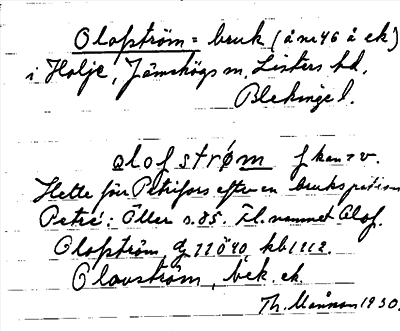 Olofström = bruk (å nr 46 å ek)
i Holje, Jämshögs sn, Listers hd,
Blekinge l.
olofstrøm f kan = v.
Hette förr Petrifors efter en brukspatron
Petré: Öller s. 85. Fl. namnet Olof.
Olofström gg 11 Ö 40 kb 1112.
Olavström, bek. ek.
Th. Månsson 1930.